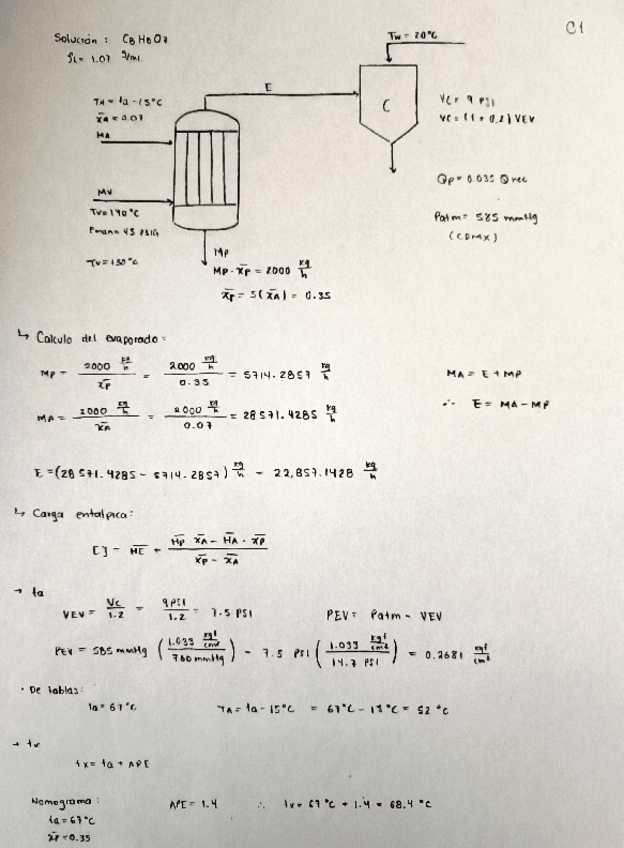 C1
Solución : C₈H₈O₇
Tw = 20°C
TA = ta - 15°C
x̄A = 0.07
MA
E
C
Vc = 9 PSI
Vc = (1 + 0.2) VEV
Qp = 0.035 Q rec
Patm = 585 mmHg
(CDMX)
MV
Tv = 140°C
Pman = 45 PSIG
Tv = 130°C
MP
MP · x̄P = 2000 kg/h
x̄P = 5(x̄A) = 0.35
↳ Calculo del evaporado :
MP = 2000 kg/h / x̄P = 2000 kg/h / 0.35 = 5714.2857 kg/h
MA = E + MP
MA = 2000 kg/h / x̄A = 2000 kg/h / 0.07 = 28571.4285 kg/h
∴ E = MA - MP
E = (28571.4285 - 5714.2857) kg/h = 22,857.1428 kg/h
↳ Carga entalpica :
[ ] = H̄E + H̄P x̄A - H̄A · x̄P / x̄P - x̄A
→ ta
VEV = Vc / 1.2 = 9 PSI / 1.2 = 7.5 PSI
PEV = Patm - VEV
PEV = 585 mmHg (1.033 kgf/cm² / 760 mmHg) - 7.5 PSI (1.033 kgf/cm² / 14.7 PSI) = 0.2681 kgf/cm²
· De tablas :
ta = 67°C
TA = ta - 15°C = 67°C - 15°C = 52 °C
→ tx
tx = ta + APE
Nomograma :
APE = 1.4 ∴ tx = 67 °C + 1.4 = 68.4 °C
ta = 67°C
x̄P = 0.35